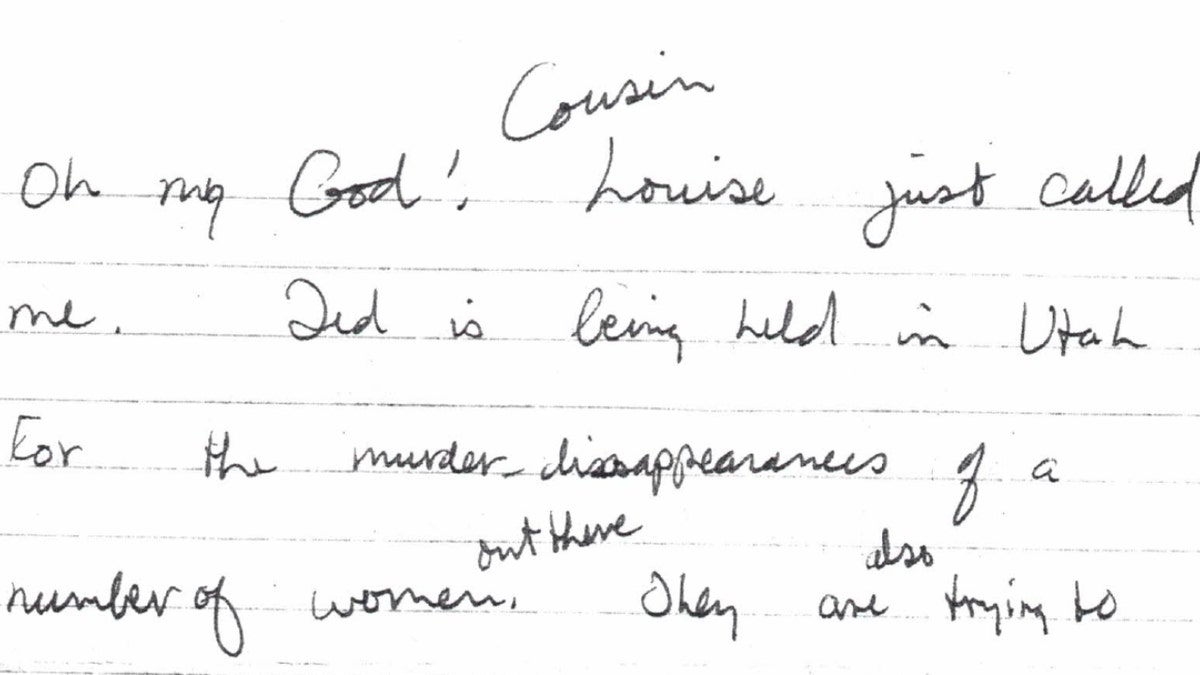 Cousin
Oh my God! Louise just called
me. Ted is being held in Utah
For the murder-dissappearances of a
out there also
number of women. They are trying to